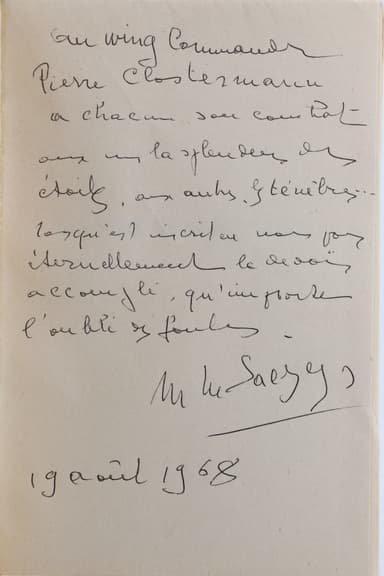 au wing Commander
Pierre Clostermann
a chacun son combat
aux uns la splendeur des
étoiles, aux autres, les ténèbres...
lorsqu'est inscrit en nous pour
éternellement le devoir
accompli, qu'importe
l'oubli des foules.
19 août 1968